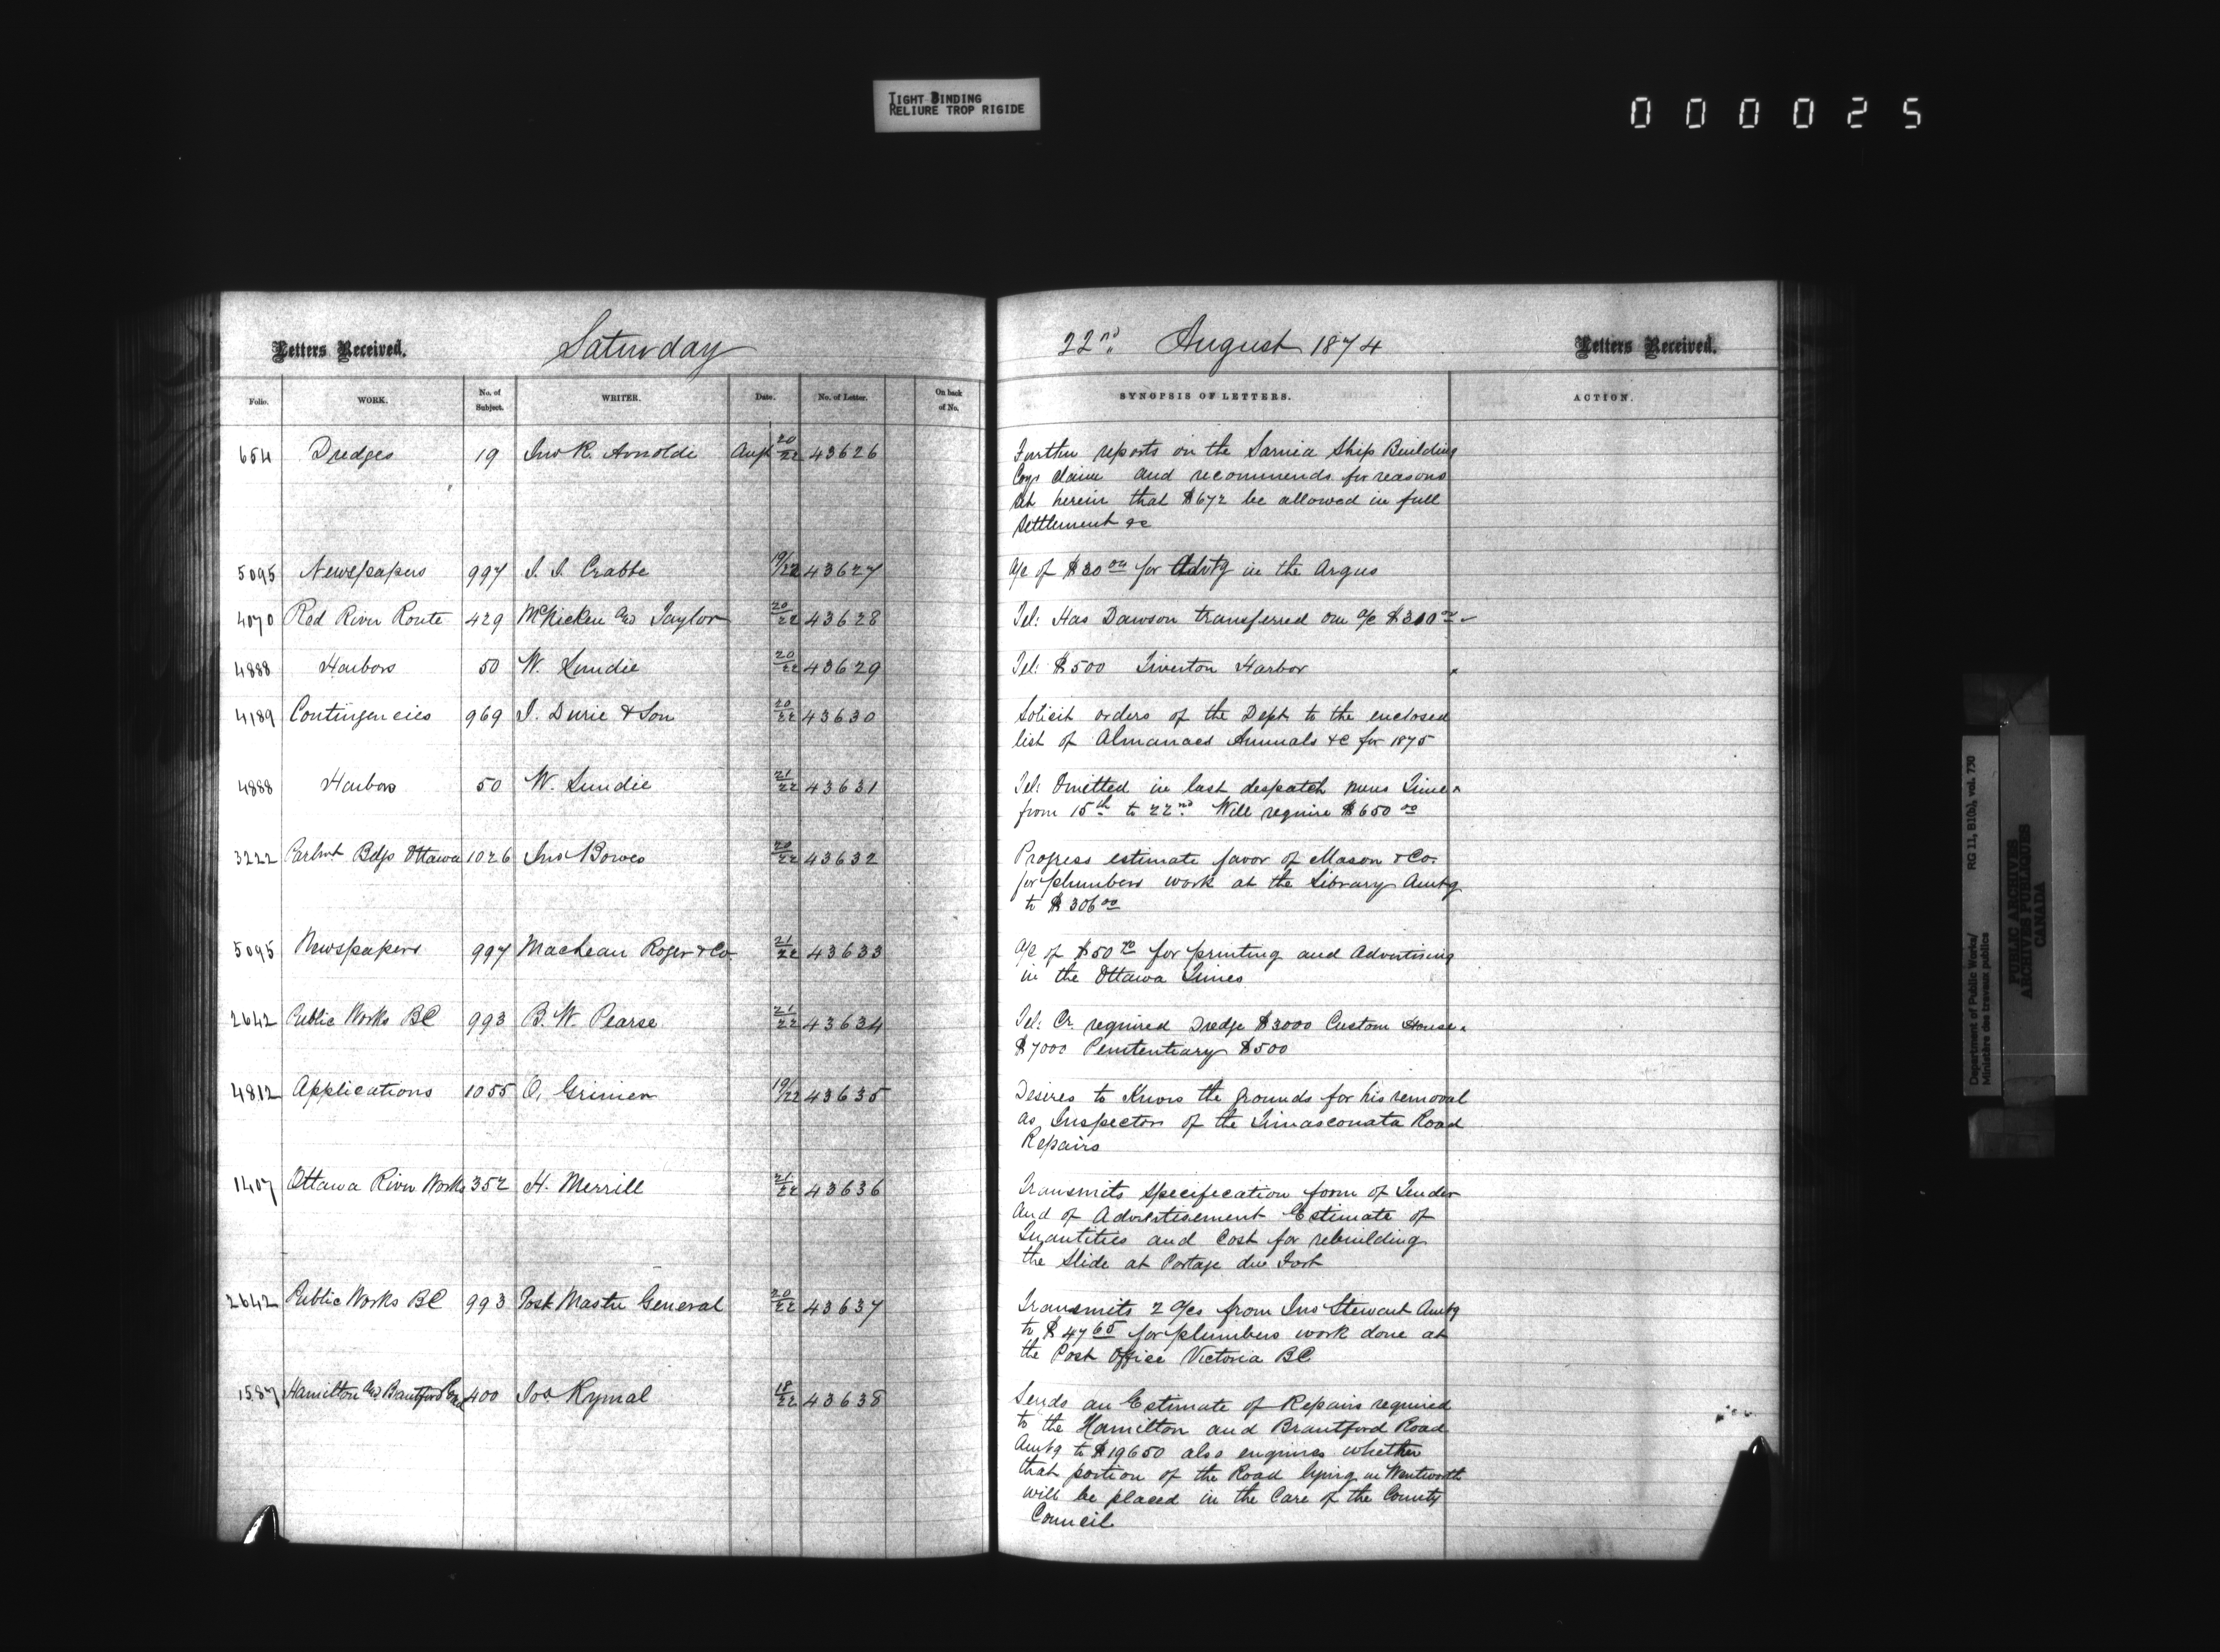 TIGHT BINDING
RELIURE TROP RIGIDE
000025
Letters Received.
Saturday
22nd August 1874
Letters Received.
Folio.
WORK.
No. of Subject.
WRITER.
Date.
No. of Letter.
On back of No.
SYNOPSIS OF LETTERS.
ACTION.
654 Dredges 19 Jno R. Arnoldi Aug 20/22 43626
Further reports on the Sarnia Ship Building
Coys claim and recommends for reasons
set herein that $672 be allowed in full
settlement &c
5095 Newspapers 997 J. J. Crabbe 19/22 43627
a/c of $30 00 for Advtg in the Argus
4070 Red River Route 429 McMicken and Taylor 20/22 43628
Tel: Has Dawson transferred our a/c $310 00
4888 Harbors 50 W. Lundie 20/22 43629
Tel: $500 Tiverton Harbor
4189 Contingencies 969 J. Durie & Son 20/22 43630
Solicit orders of the Dept to the enclosed
list of Almanacs Annuals &c for 1875
4888 Harbors 50 W. Lundie 21/22 43631
Tel: Omitted in last despatch mens Time
from 15th to 22nd Will require $650 00
3222 Parlmt Bdgs Ottawa 1026 Jno Bowes 20/22 43632
Progress estimate favor of Mason & Co.
for plumbers work at the Library Amtg
to $306 00
5095 Newspapers 997 MacLean Roger & Co. 21/22 43633
a/c of $50 70 for printing and Advertising
in the Ottawa Times
2642 Public Works BC 993 B. W. Pearse 21/22 43634
Tel: Cr. required Dredge $3000 Custom House
$7000 Penitentiary $500
4812 Applications 1055 O. Grinier 19/22 43635
Desires to Know the grounds for his removal
as Inspector of the Timasconata Road
Repairs
1407 Ottawa River Works 352 H. Merrill 21/22 43636
Transmits specification form of Tender
and of Advertisement Estimate of
Quantities and Cost for rebuilding
the Slide at Portage du Fort
2642 Public Works BC 993 Post Master General 20/22 43637
Transmits 2 a/cs from Jno Stewart Amtg
to $47 65 for plumbers work done at
the Post Office Victoria BC
1587 Hamilton and Brantford Road 400 Jos Rymal 18/22 43638
Sends an Estimate of Repairs required
to the Hamilton and Brantford Road
Amtg to $19650 also enquires whether
that portion of the Road lying in Wentworth
will be placed in the Care of the County
Council
Department of Public Works/
Ministère des travaux publics
RG 11, B1(b), vol. 730
PUBLIC ARCHIVES
ARCHIVES PUBLIQUES
CANADA